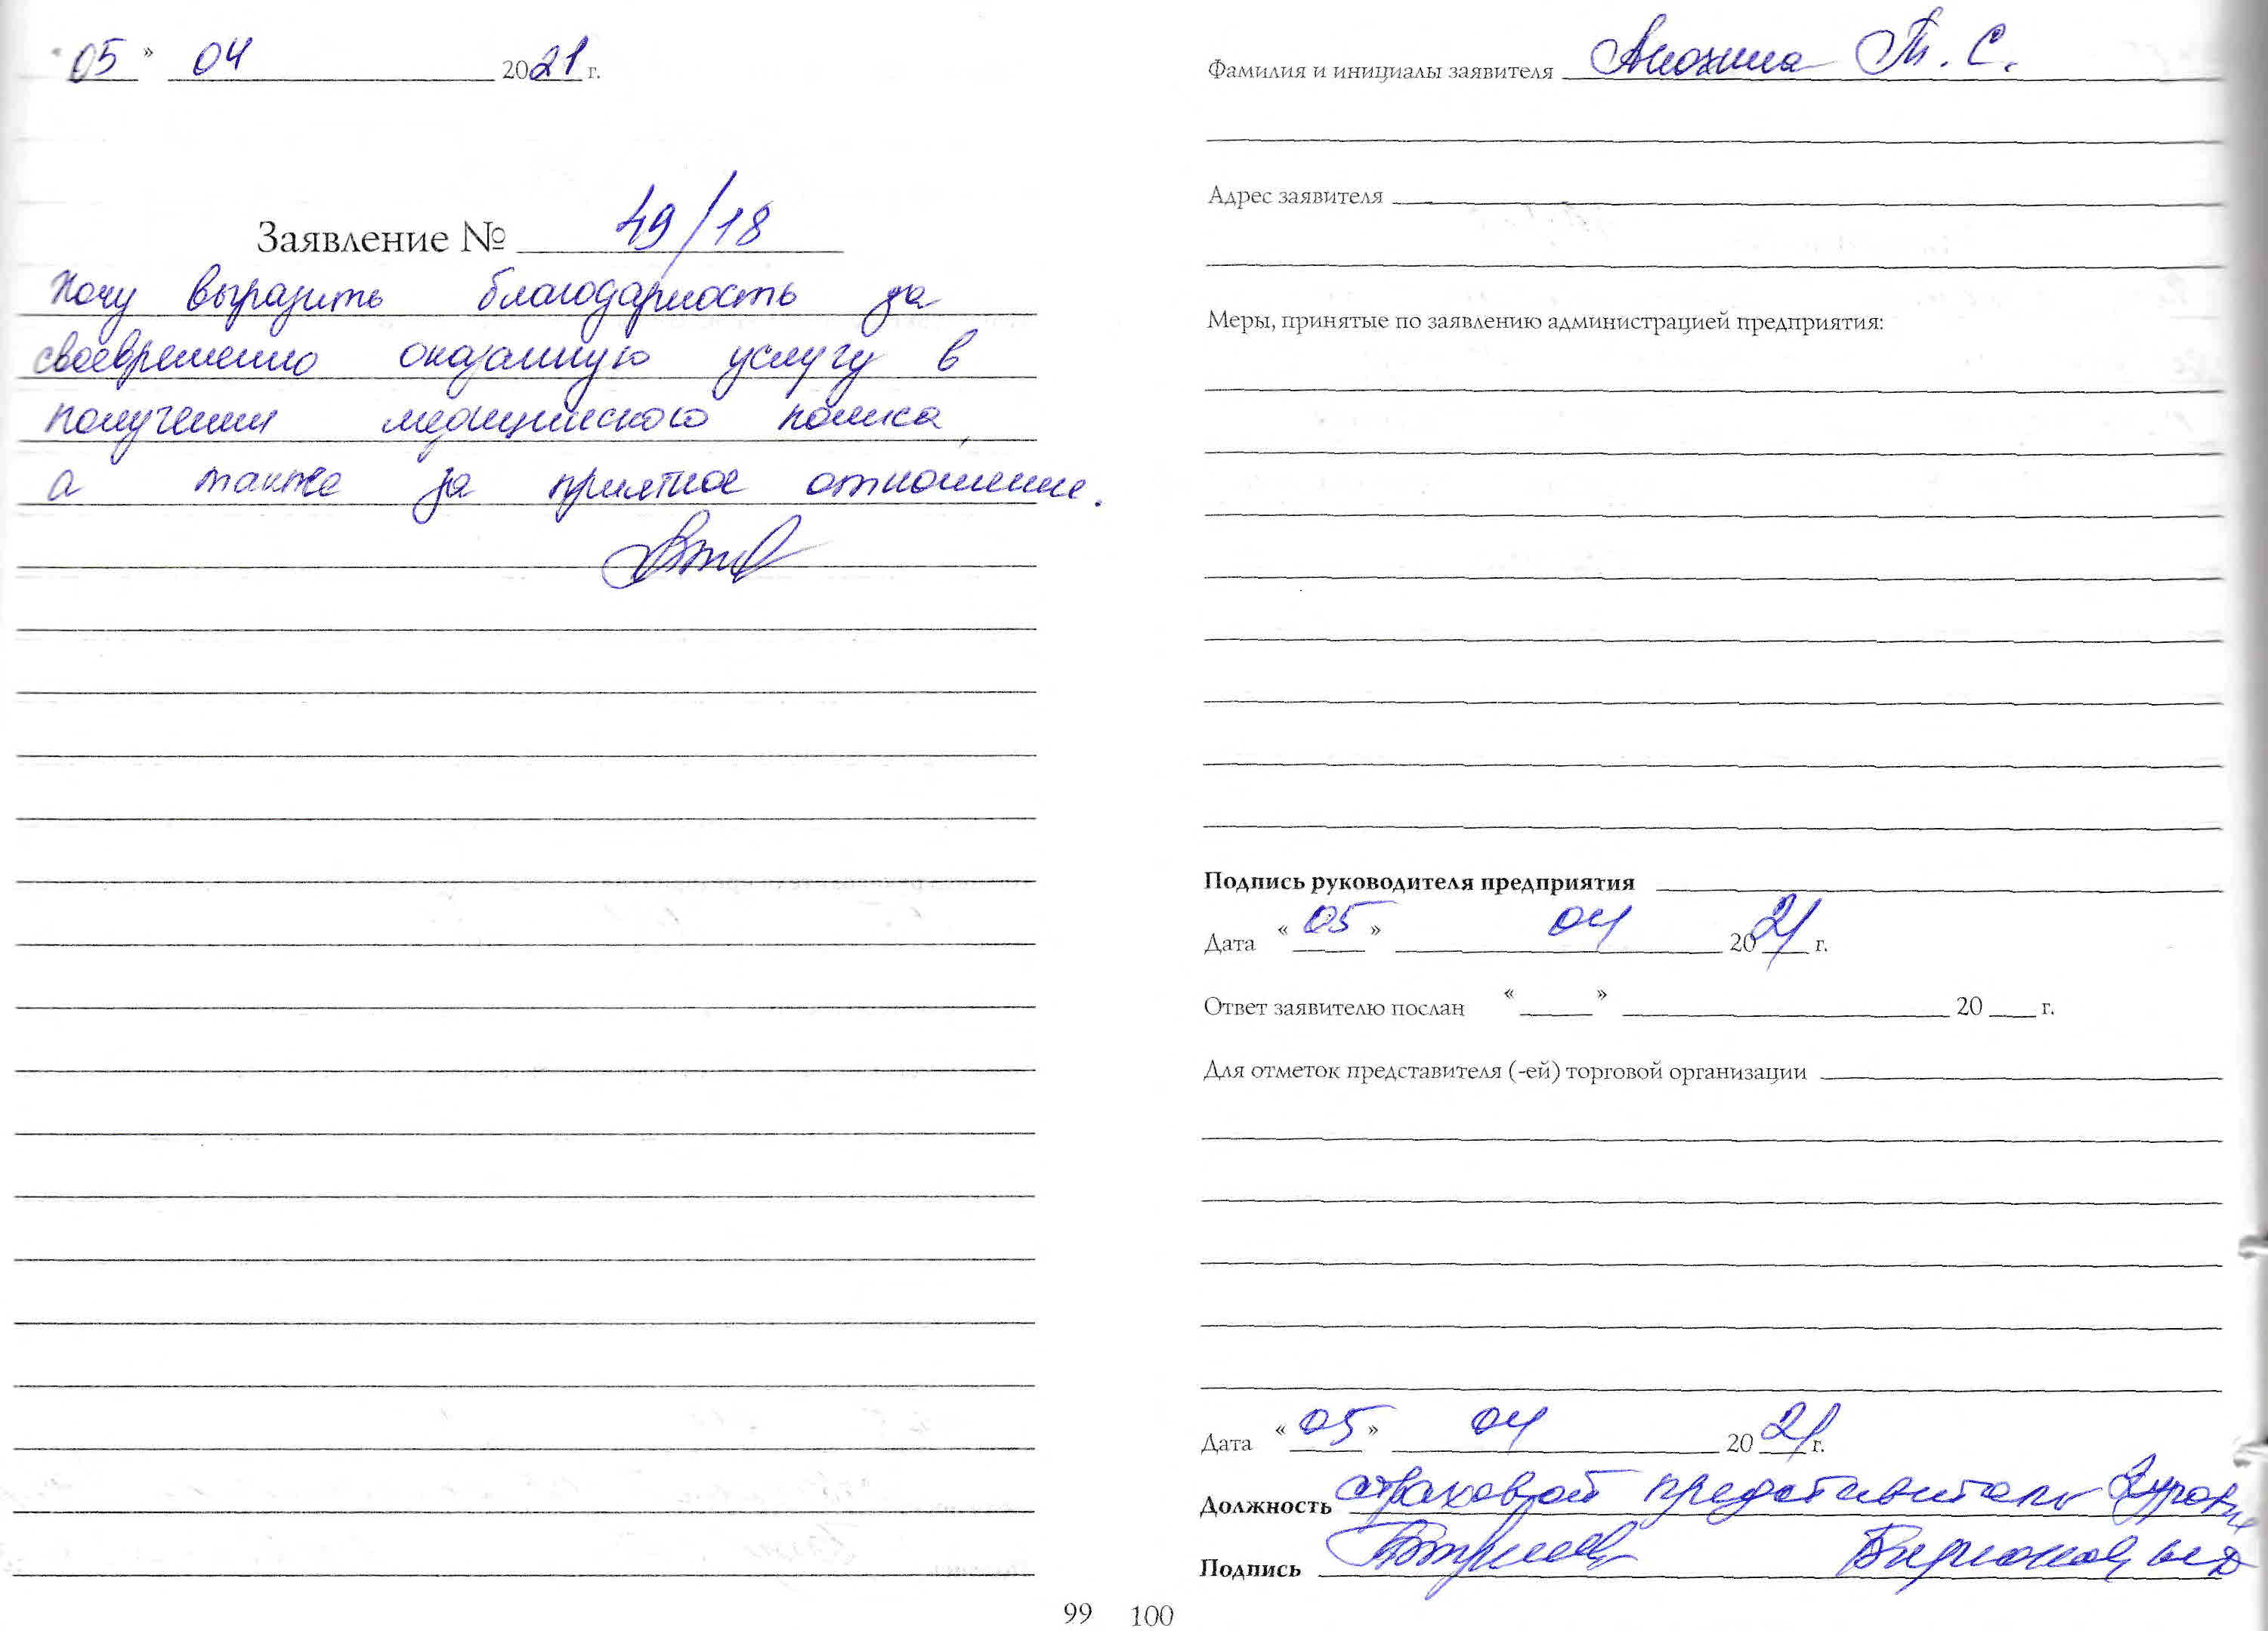 « 05 » 04 2021 г.
Заявление № 49/18
Хочу выразить благодарность за
своевременно оказанную услугу в
получении медицинского полиса,
а также за приятное отношение.
Фамилия и инициалы заявителя Анохина Т. С.
Адрес заявителя
Меры, принятые по заявлению администрацией предприятия:
Подпись руководителя предприятия
Дата « 05 » 04 2021 г.
Ответ заявителю послан « » 20 г.
Для отметок представителя (-ей) торговой организации
Дата « 05 » 04 2021 г.
Должность страховой представитель
Подпись
99 100